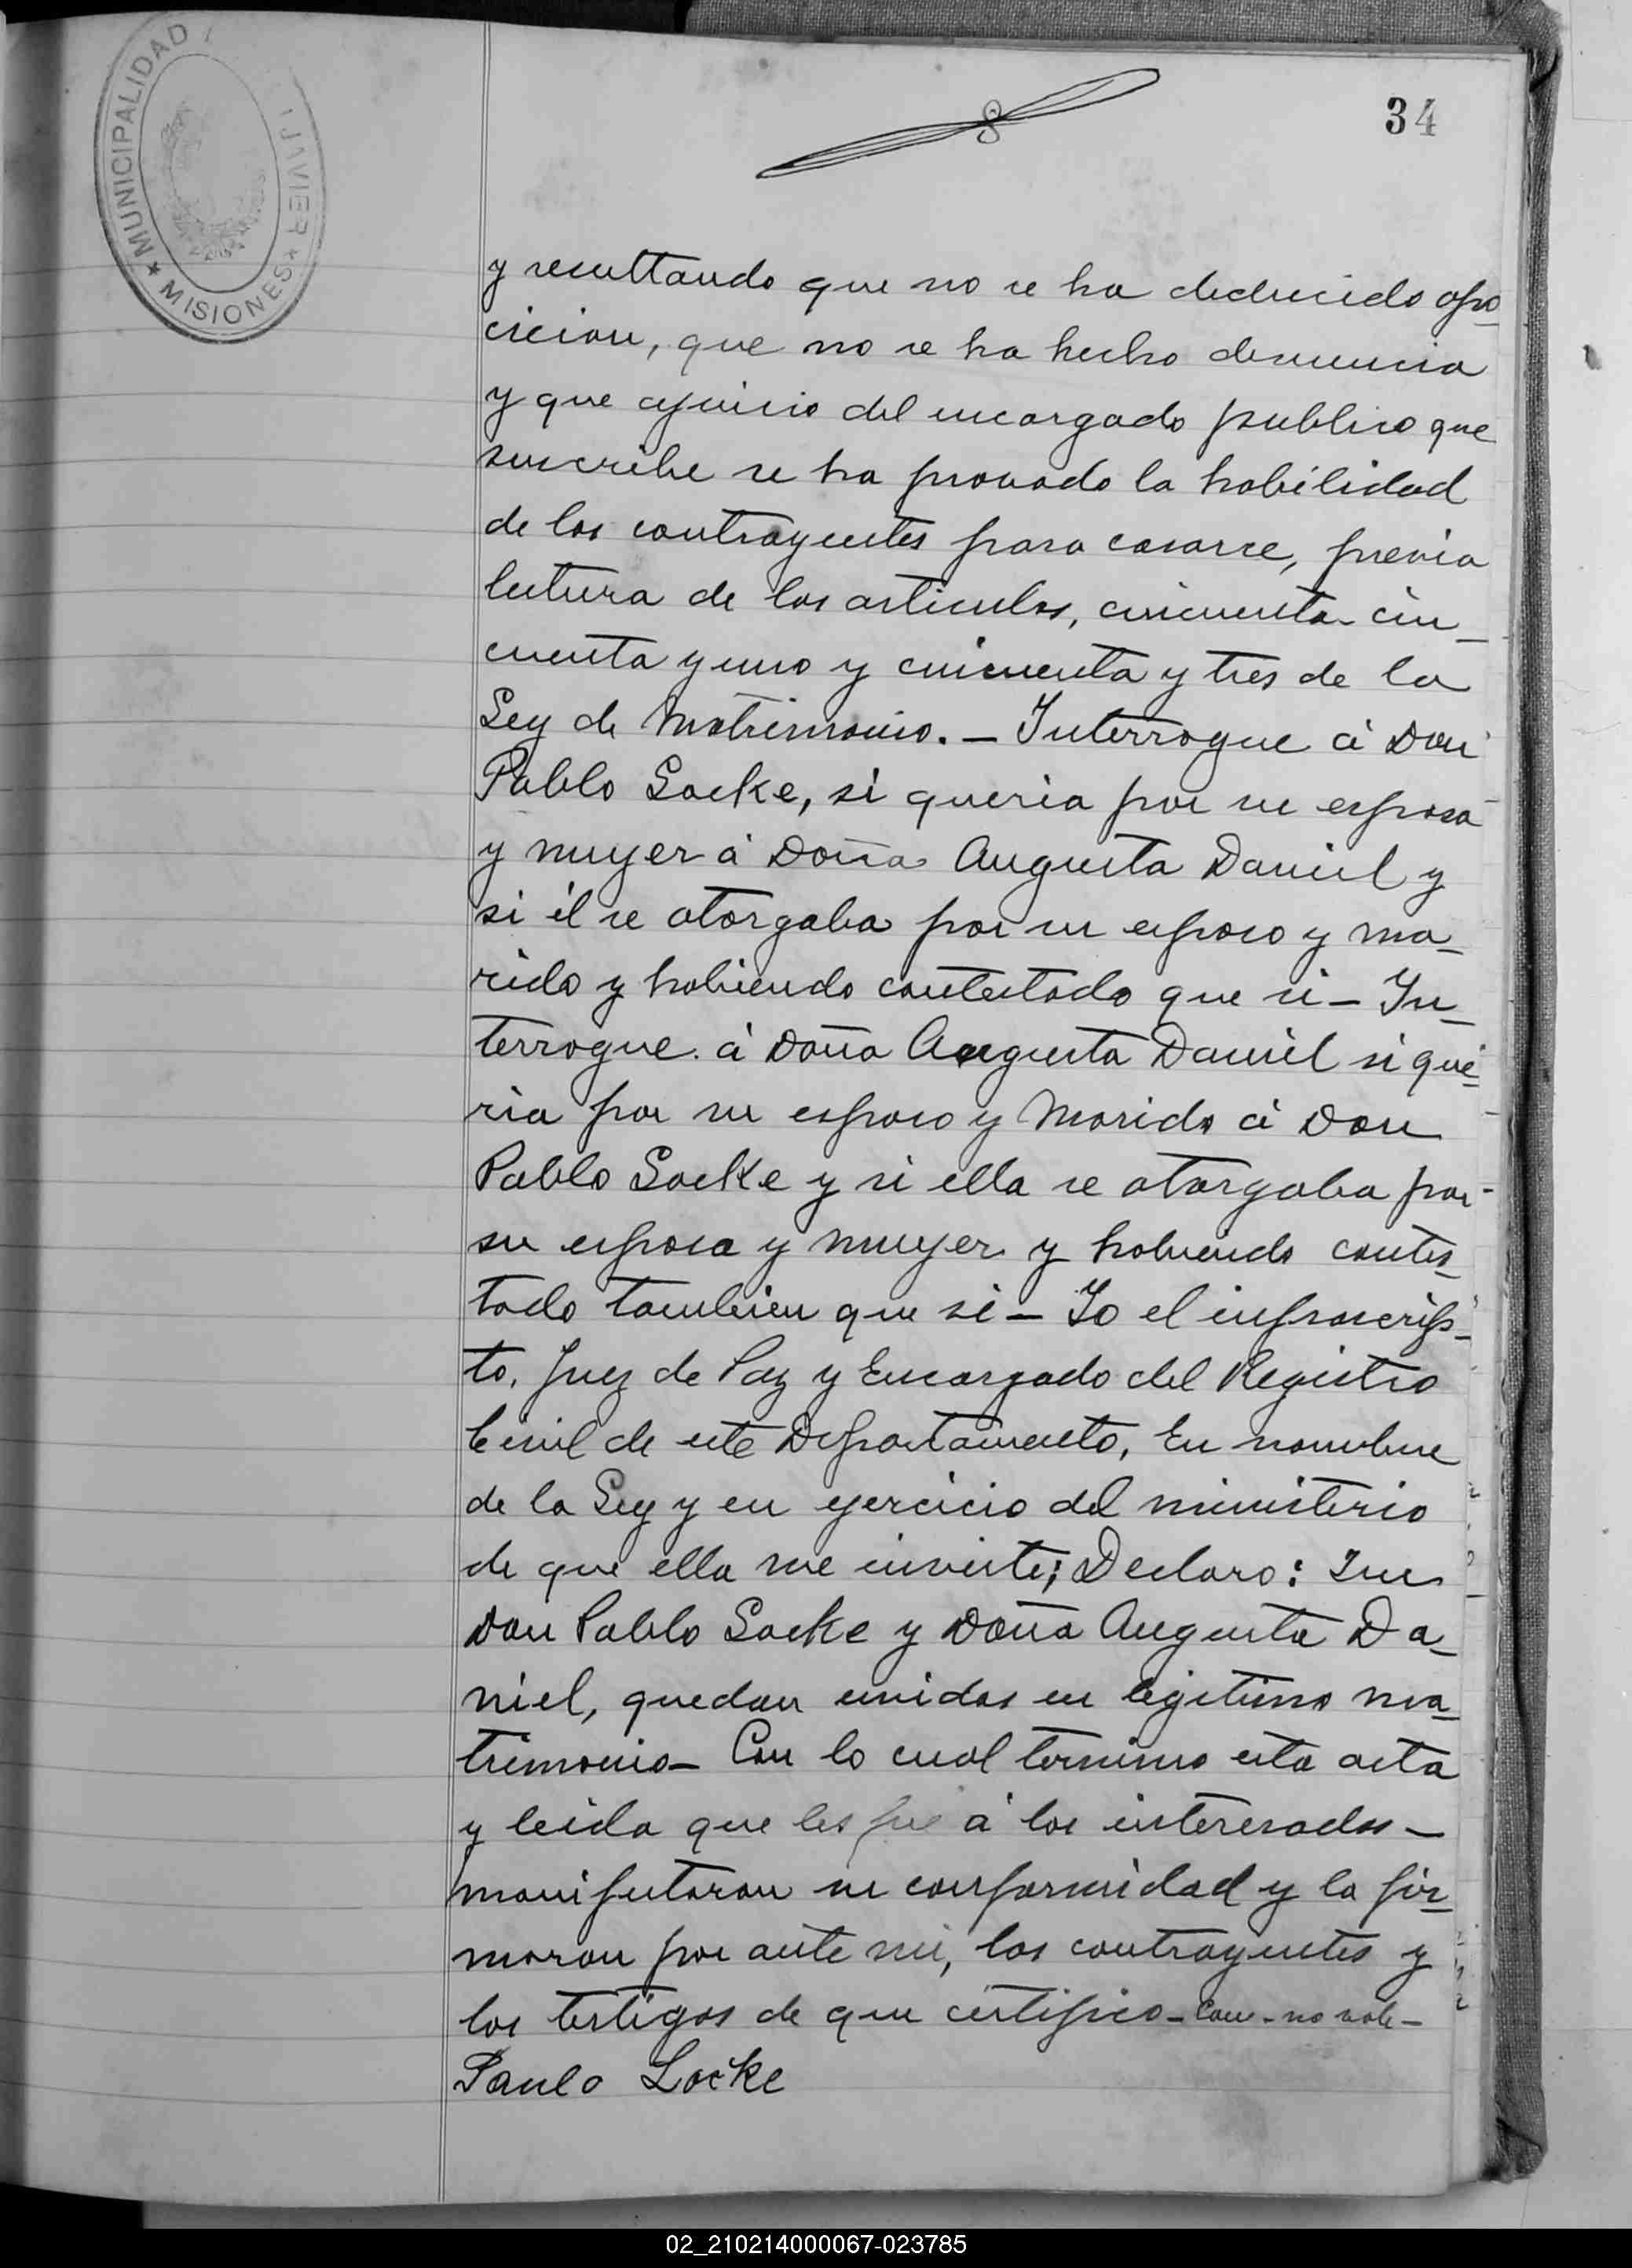 MUNICIPALIDAD JAVIER
★ MISIONES ★
34
y resultando que no se ha deducido opo_
cicion, que no se ha hecho denuncia
y que ajuicio del encargado publico que
suscribe se ha provado la habilidad
de los contrayentes para casarce, previa
lectura de los articulos, cincuenta cin_
cuenta y uno y cincuenta y tres de la
Ley de Matrimonio. _ Interrogue á Don
Pablo Locke, si queria por su esposa
y muyer á Doña Augusta Daniel y
si él se otorgaba por su esposo y ma_
rido y habiendo contestado que si _ In_
terrogue á Doña Augusta Daniel si que_
ria por su esposo y Marido á Don
Pablo Locke y si ella se otorgaba por
su esposa y muyer y habiendo contes_
tado tambien que si _ Yo el infrascrip_
to, Juez de Paz y Encargado del Registro
Civil de este Departamento, En nombre
de la Ley y en ejercicio del ministerio
de que ella me inviste; Declaro: Que
Don Pablo Locke y Doña Augusta Da_
niel, quedan unidos en legitimo ma_
trimonio _ Con lo cual termino esta acta
y leida que les fue á los interesados _
manifestaron su conformidad y la fir_
maron por ante mi, los contrayentes y
los testigos de que certifico _ Con - no vale _
Paulo Locke
02_210214000067-023785